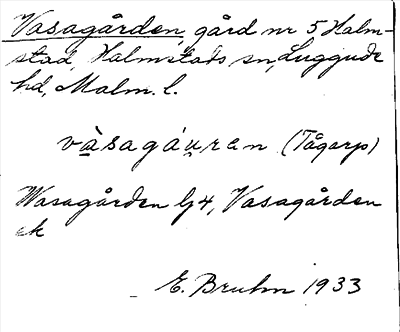 Vasagården, gård nr 5 Halm-
stad, Halmstads sn, Luggude
hd, Malm. l.
vàsagáu̯ran (Tågarp)
Wasagården lj4, Vasagården
ek
E. Bruhn 1933